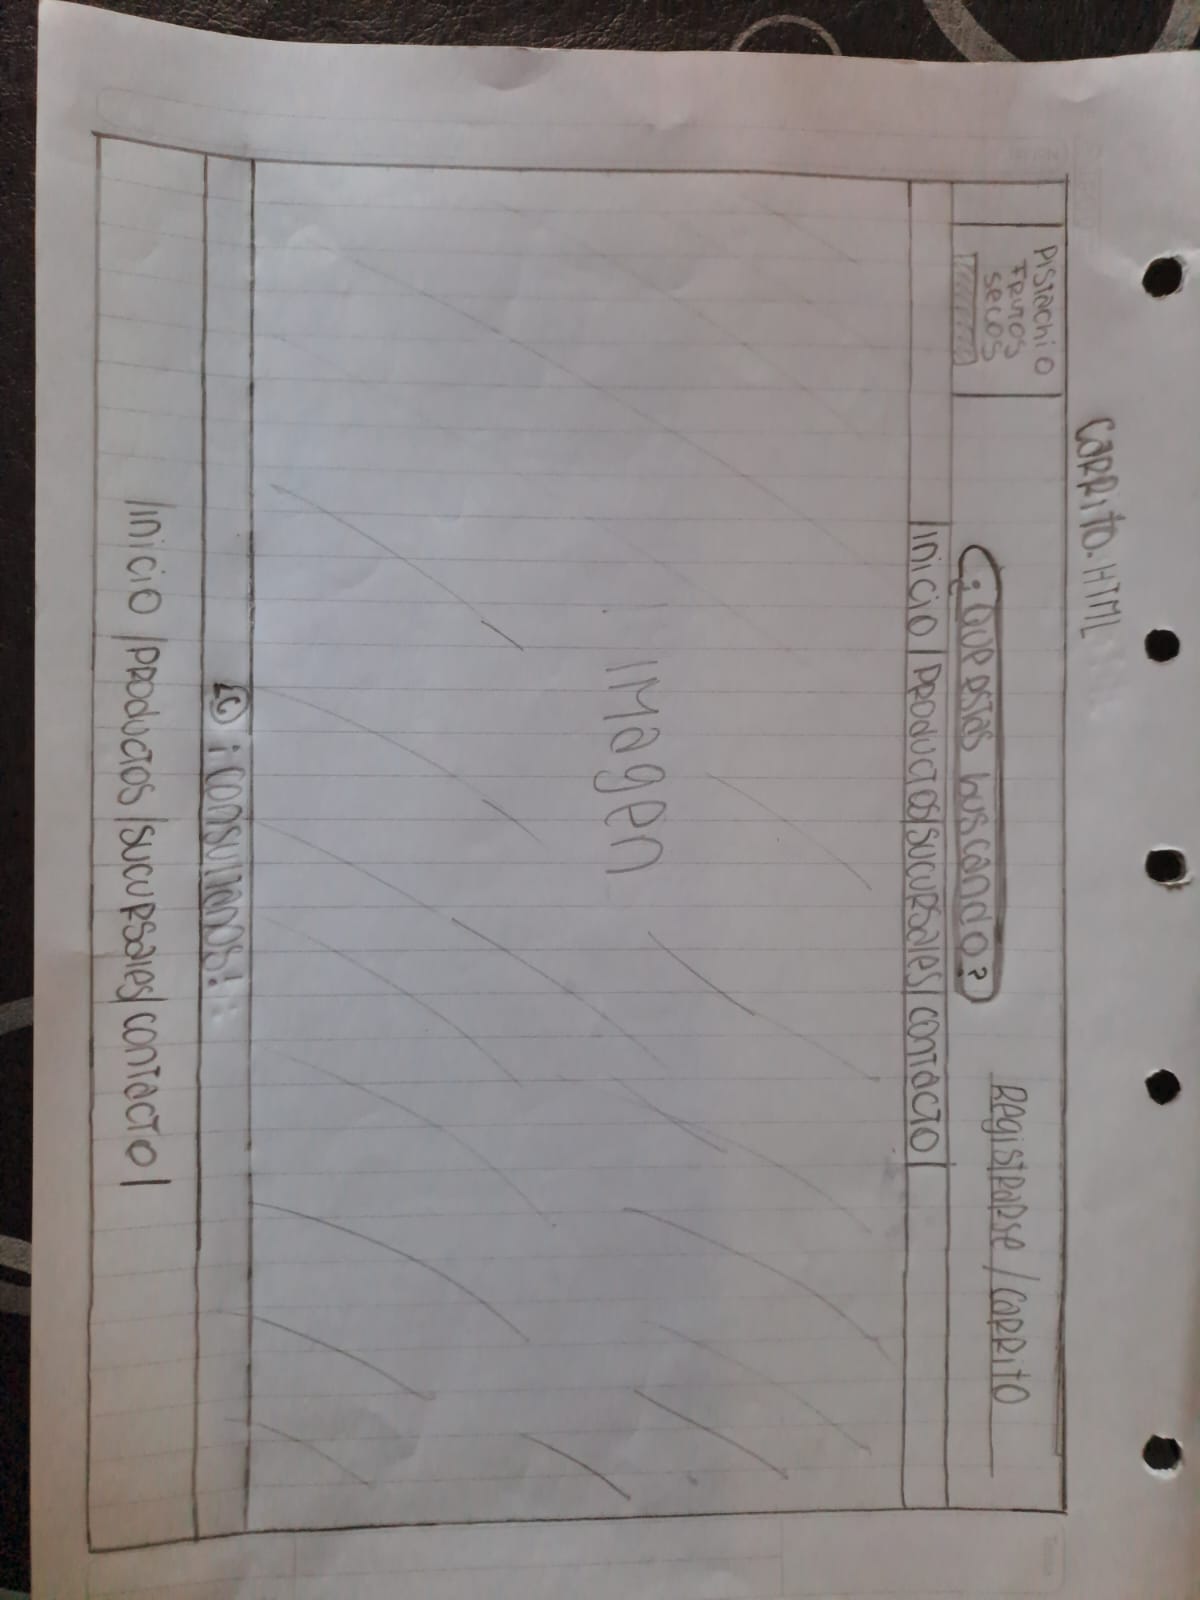 CARRITO.HTML
Pistachio
FRUTOS
secos
¿Que estas buscando?
Registrarse / CARRITO
|inicio |PRODUCTOS|sucursales| contacto|
IMagen
¡consultanos!
|inicio |PRODUCTOS |sucursales| contacto|